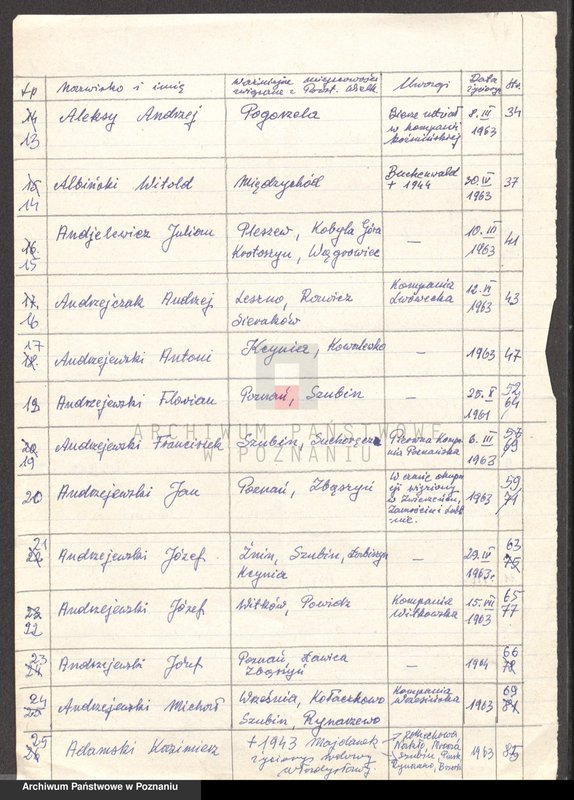 Lp Nazwisko i imię Ważniejsze miejscowości związane z Powst. Wielk. Uwagi Data życiorysu Str.
14 13 Aleksy Andrzej Pogorzela Bierze udział w kompanii koźmińskiej 8. III 1963 34
15 14 Albiński Witold Międzychód Buchenwald + 1944 20. IV 1963 37
16. 15 Andjelewicz Julian Pleszew, Kobyla Góra Krotoszyn, Wągrowiec — 10. III 1963 41
17. 16 Andrzejczak Andrzej Leszno, Rawicz Sieraków Kompania Lwówecka 12. VI 1963 43
17 18. Andrzejewski Antoni Kcynia, Kowalewko — 1963 47
19 Andrzejewski Florian Poznań, Szubin — 25. X 1961 52 64
20 19 Andrzejewski Franciszek Szubin, Pierwsza Kompania Poznańska 6. III 1963 57 69
20 Andrzejewski Jan Poznań, Zbąszyń W czasie okupacji więziony w Zwierzyńcu, Zamościu i 1963 59 71
21 22 Andrzejewski Józef Żnin, Szubin, Kcynia — 29. IV 1963. 63 75
23 22 Andrzejewski Józef Witków, Powidz Kompania Witkowska 15. VII 1963 65 77
23 24 Andrzejewski Józef Poznań Ławica Zbąszyń — 1964 66 78
24 25 Andrzejewski Michał Września, Kołaczkowo Szubin Rynarzewo Kompania Wrzesińska 1963 69 81
25 26 Adamski Kazimierz + 1943 Majdanek życiorys Nakło, Mrocza Szubin, Rynarzewo, 1963 85
ARCHIWUM PAŃSTWOWE
W POZNANIU
Archiwum Państwowe w Poznaniu